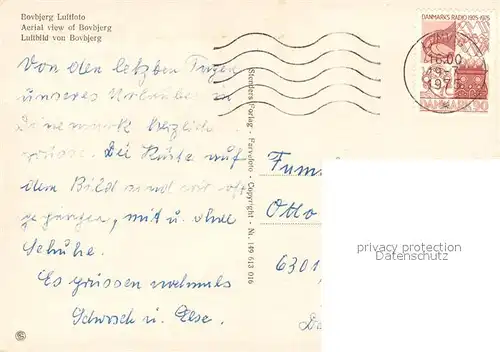 Bovbjerg Luftfoto
Aerial view of Bovbjerg
Luftbild von Bovbjerg
DANMARKS RADIO 1925-1975
16.00
19-7
1975
DANMARK 90
Von den letzten Tagen
unseres Urlaubes in
Dänemark herzliche
Grüsse. Die Küste auf
dem Bild sind wir oft
gegangen, mit u. ohne
Schuhe.
Es grüssen nochmals
Schorsch u. Else.
Stenders Forlag - Farvefoto - Copyright - Nr. 149 613 016
Otto
6301
privacy protection
Datenschutz